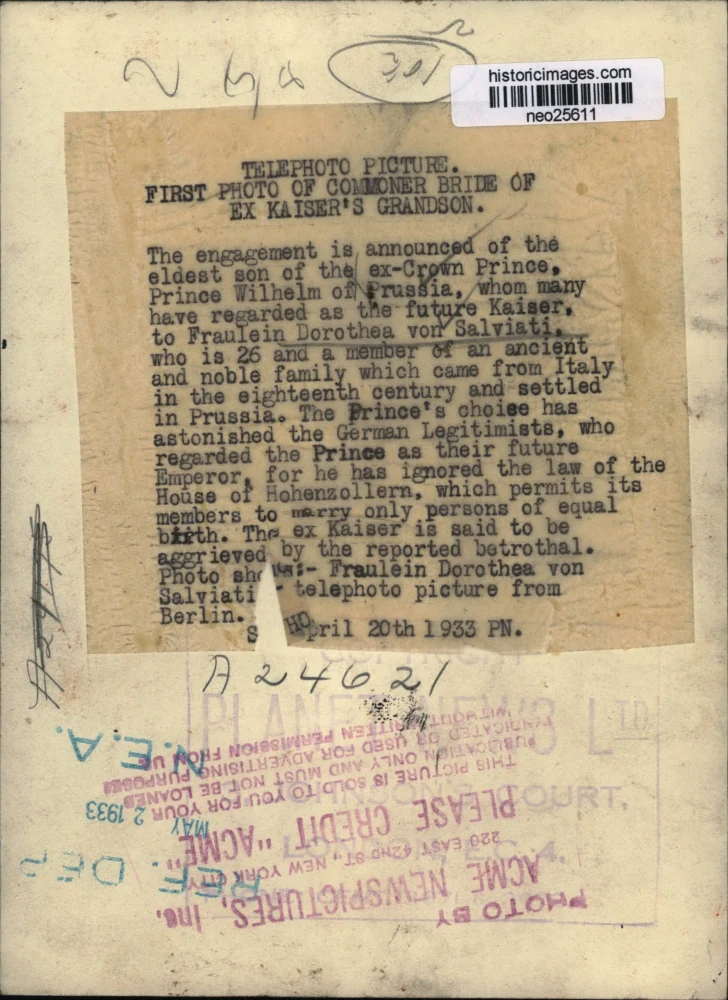 301
historicimages.com
neo25611
TELEPHOTO PICTURE.
FIRST PHOTO OF COMMONER BRIDE OF
EX KAISER'S GRANDSON.
The engagement is announced of the
eldest son of the ex-Crown Prince,
Prince Wilhelm of Prussia, whom many
have regarded as the future Kaiser,
to Fraulein Dorothea von Salviati,
who is 26 and a member of an ancient
and noble family which came from Italy
in the eighteenth century and settled
in Prussia. The Prince's choice has
astonished the German Legitimists, who
regarded the Prince as their future
Emperor, for he has ignored the law of the
House of Hohenzollern, which permits its
members to marry only persons of equal
birth. The ex Kaiser is said to be
aggrieved by the reported betrothal.
Photo shows:- Fraulein Dorothea von
Salviati - telephoto picture from
Berlin.
S HO April 20th 1933 PN.
A24621
PLANET NEWS LTD
JOHNSON'S COURT,
LONDON, E.C.4.
PHOTO BY
ACME NEWSPICTURES, Inc.
220 EAST 42ND ST., NEW YORK CITY
PLEASE CREDIT "ACME"
THIS PICTURE IS SOLD TO YOU FOR YOUR
PUBLICATION ONLY AND MUST NOT BE LOANED
SYNDICATED OR USED FOR ADVERTISING PURPOSES
WITHOUT WRITTEN PERMISSION FROM US
REF. DEP
MAY 2 1933
N.E.A.